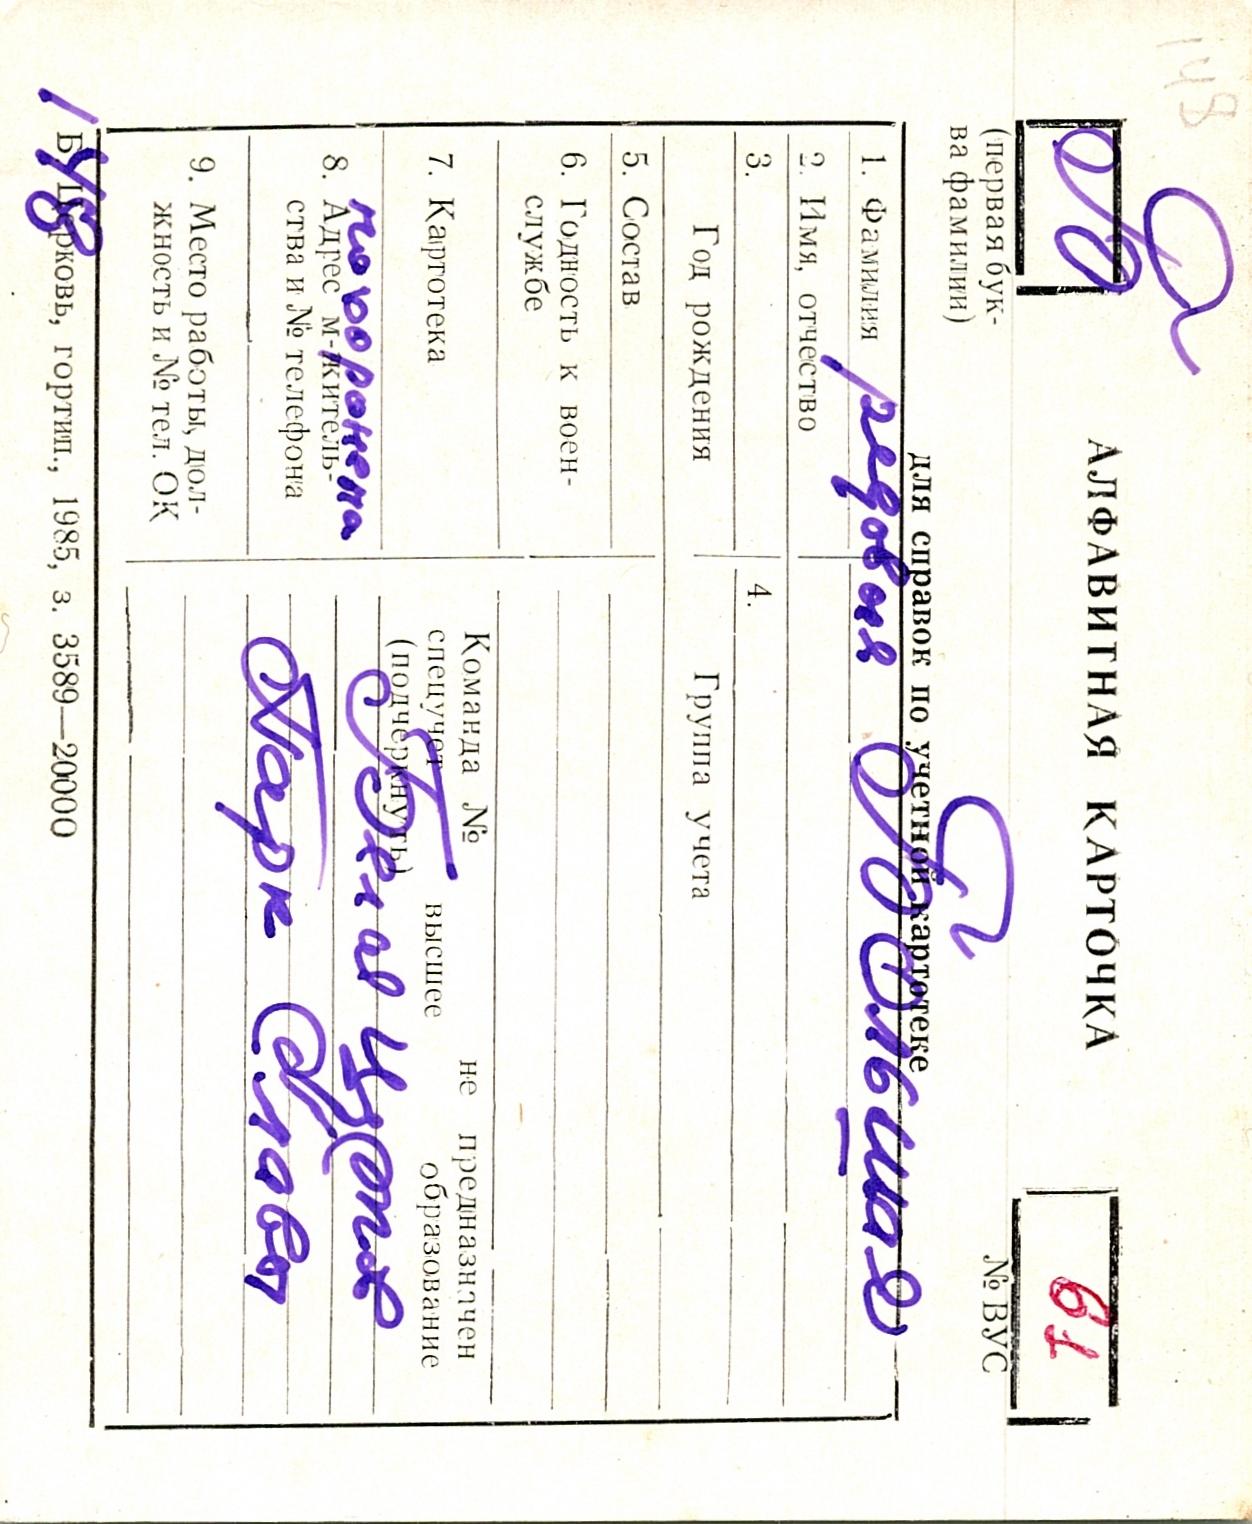 148
Б
АЛФАВИТНАЯ КАРТОЧКА
61
(первая бук-
ва фамилии)
№ ВУС
для справок по учетной картотеке
1. Фамилия
рядовая Большая
2. Имя, отчество
3.
4.
Год рождения
Группа учета
5. Состав
6. Годность к воен-
службе
7. Картотека
Команда № не предназначен
спецучет высшее образование
(подчеркнуть)
похоронена
Белая Церковь
8. Адрес м-житель-
ства и № телефона
Парк Славы
9. Место работы, дол-
жность и № тел. ОК
148
Б. Церковь, гортип., 1985, з. 3589—20000